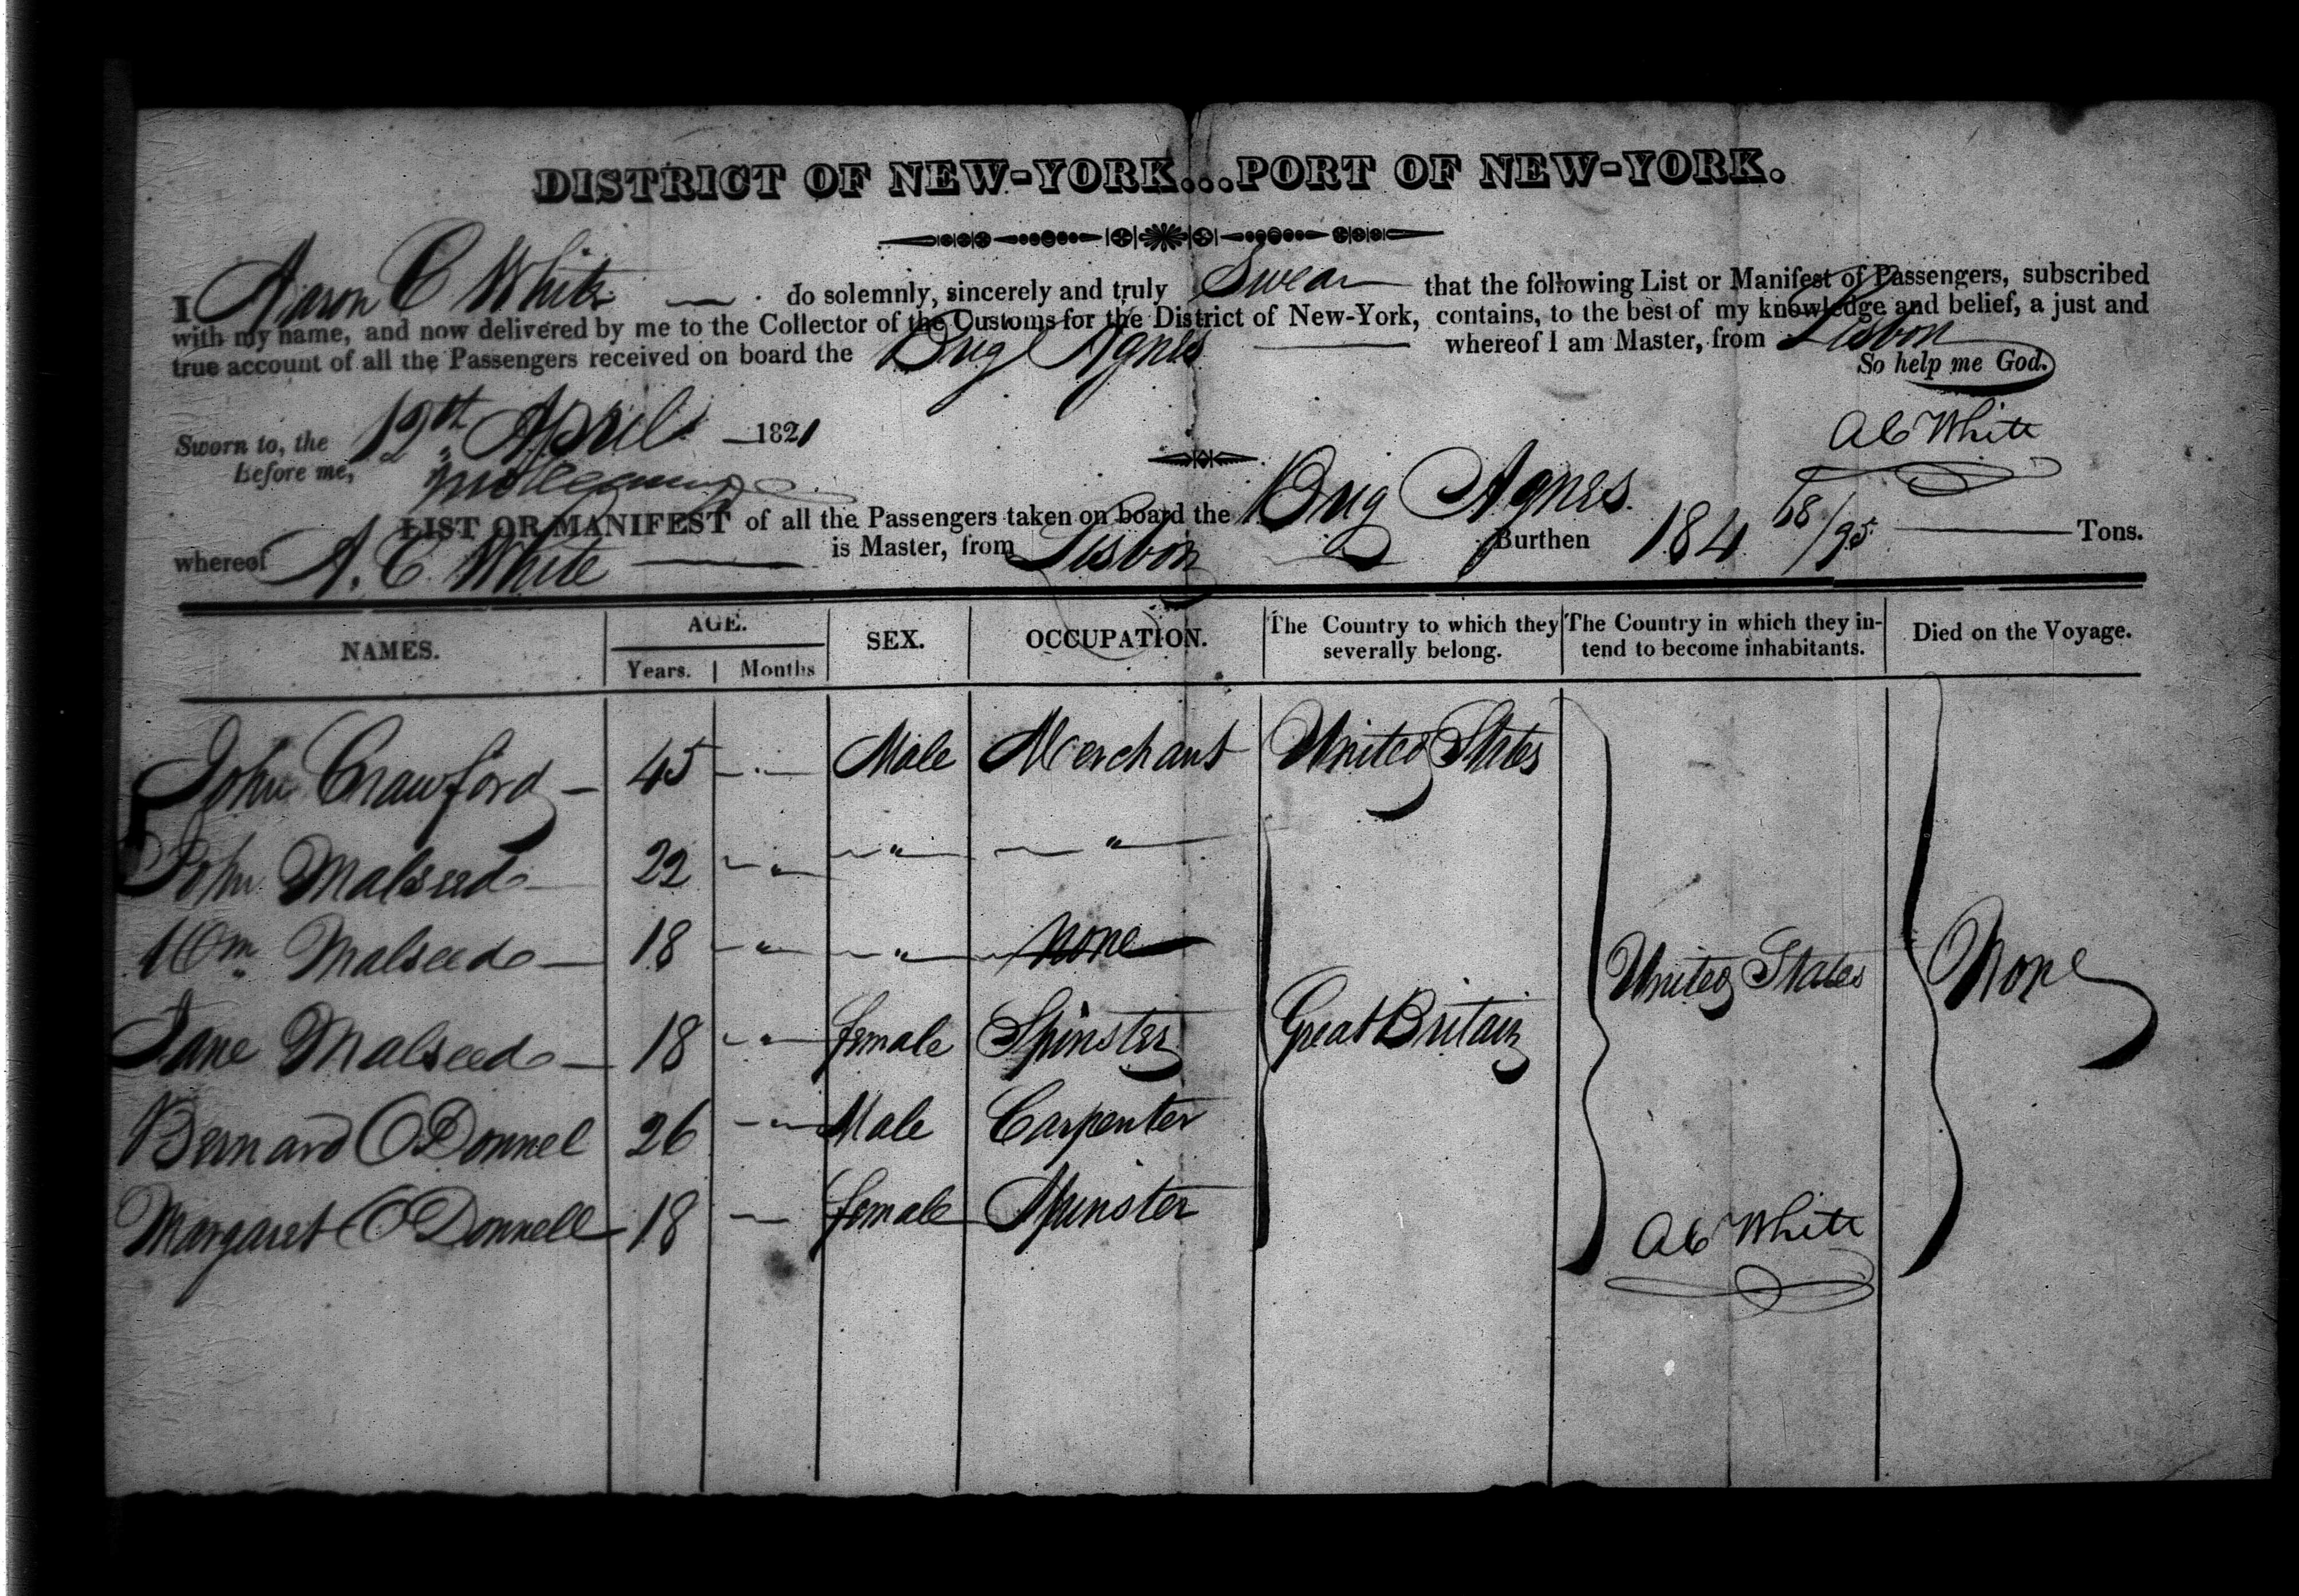 DISTRICT OF NEW-YORK...PORT OF NEW-YORK.
I Aaron C White do solemnly, sincerely and truly Swear that the following List or Manifest of Passengers, subscribed
with my name, and now delivered by me to the Collector of the Customs for the District of New-York, contains, to the best of my knowledge and belief, a just and
true account of all the Passengers received on board the Brig Agnes whereof I am Master, from Lisbon
So help me God.
Sworn to, the 12th April 1821
A C White
Before me,
LIST OR MANIFEST of all the Passengers taken on board the Brig Agnes.
whereof A. C. White is Master, from Lisbon Burthen 184 68/95 Tons.
NAMES. AGE. SEX. OCCUPATION. The Country to which they severally belong. The Country in which they in-tend to become inhabitants. Died on the Voyage.
Years. Months
John Crawford 45 Male Merchant United States
John Malseed 22 " " "
Wm Malseed 18 " " None
Jane Malseed 18 " female Spinster Great Britain United States None
Bernard ODonnel 26 " Male Carpenter
Margaret ODonnell 18 female Spinster
A C White